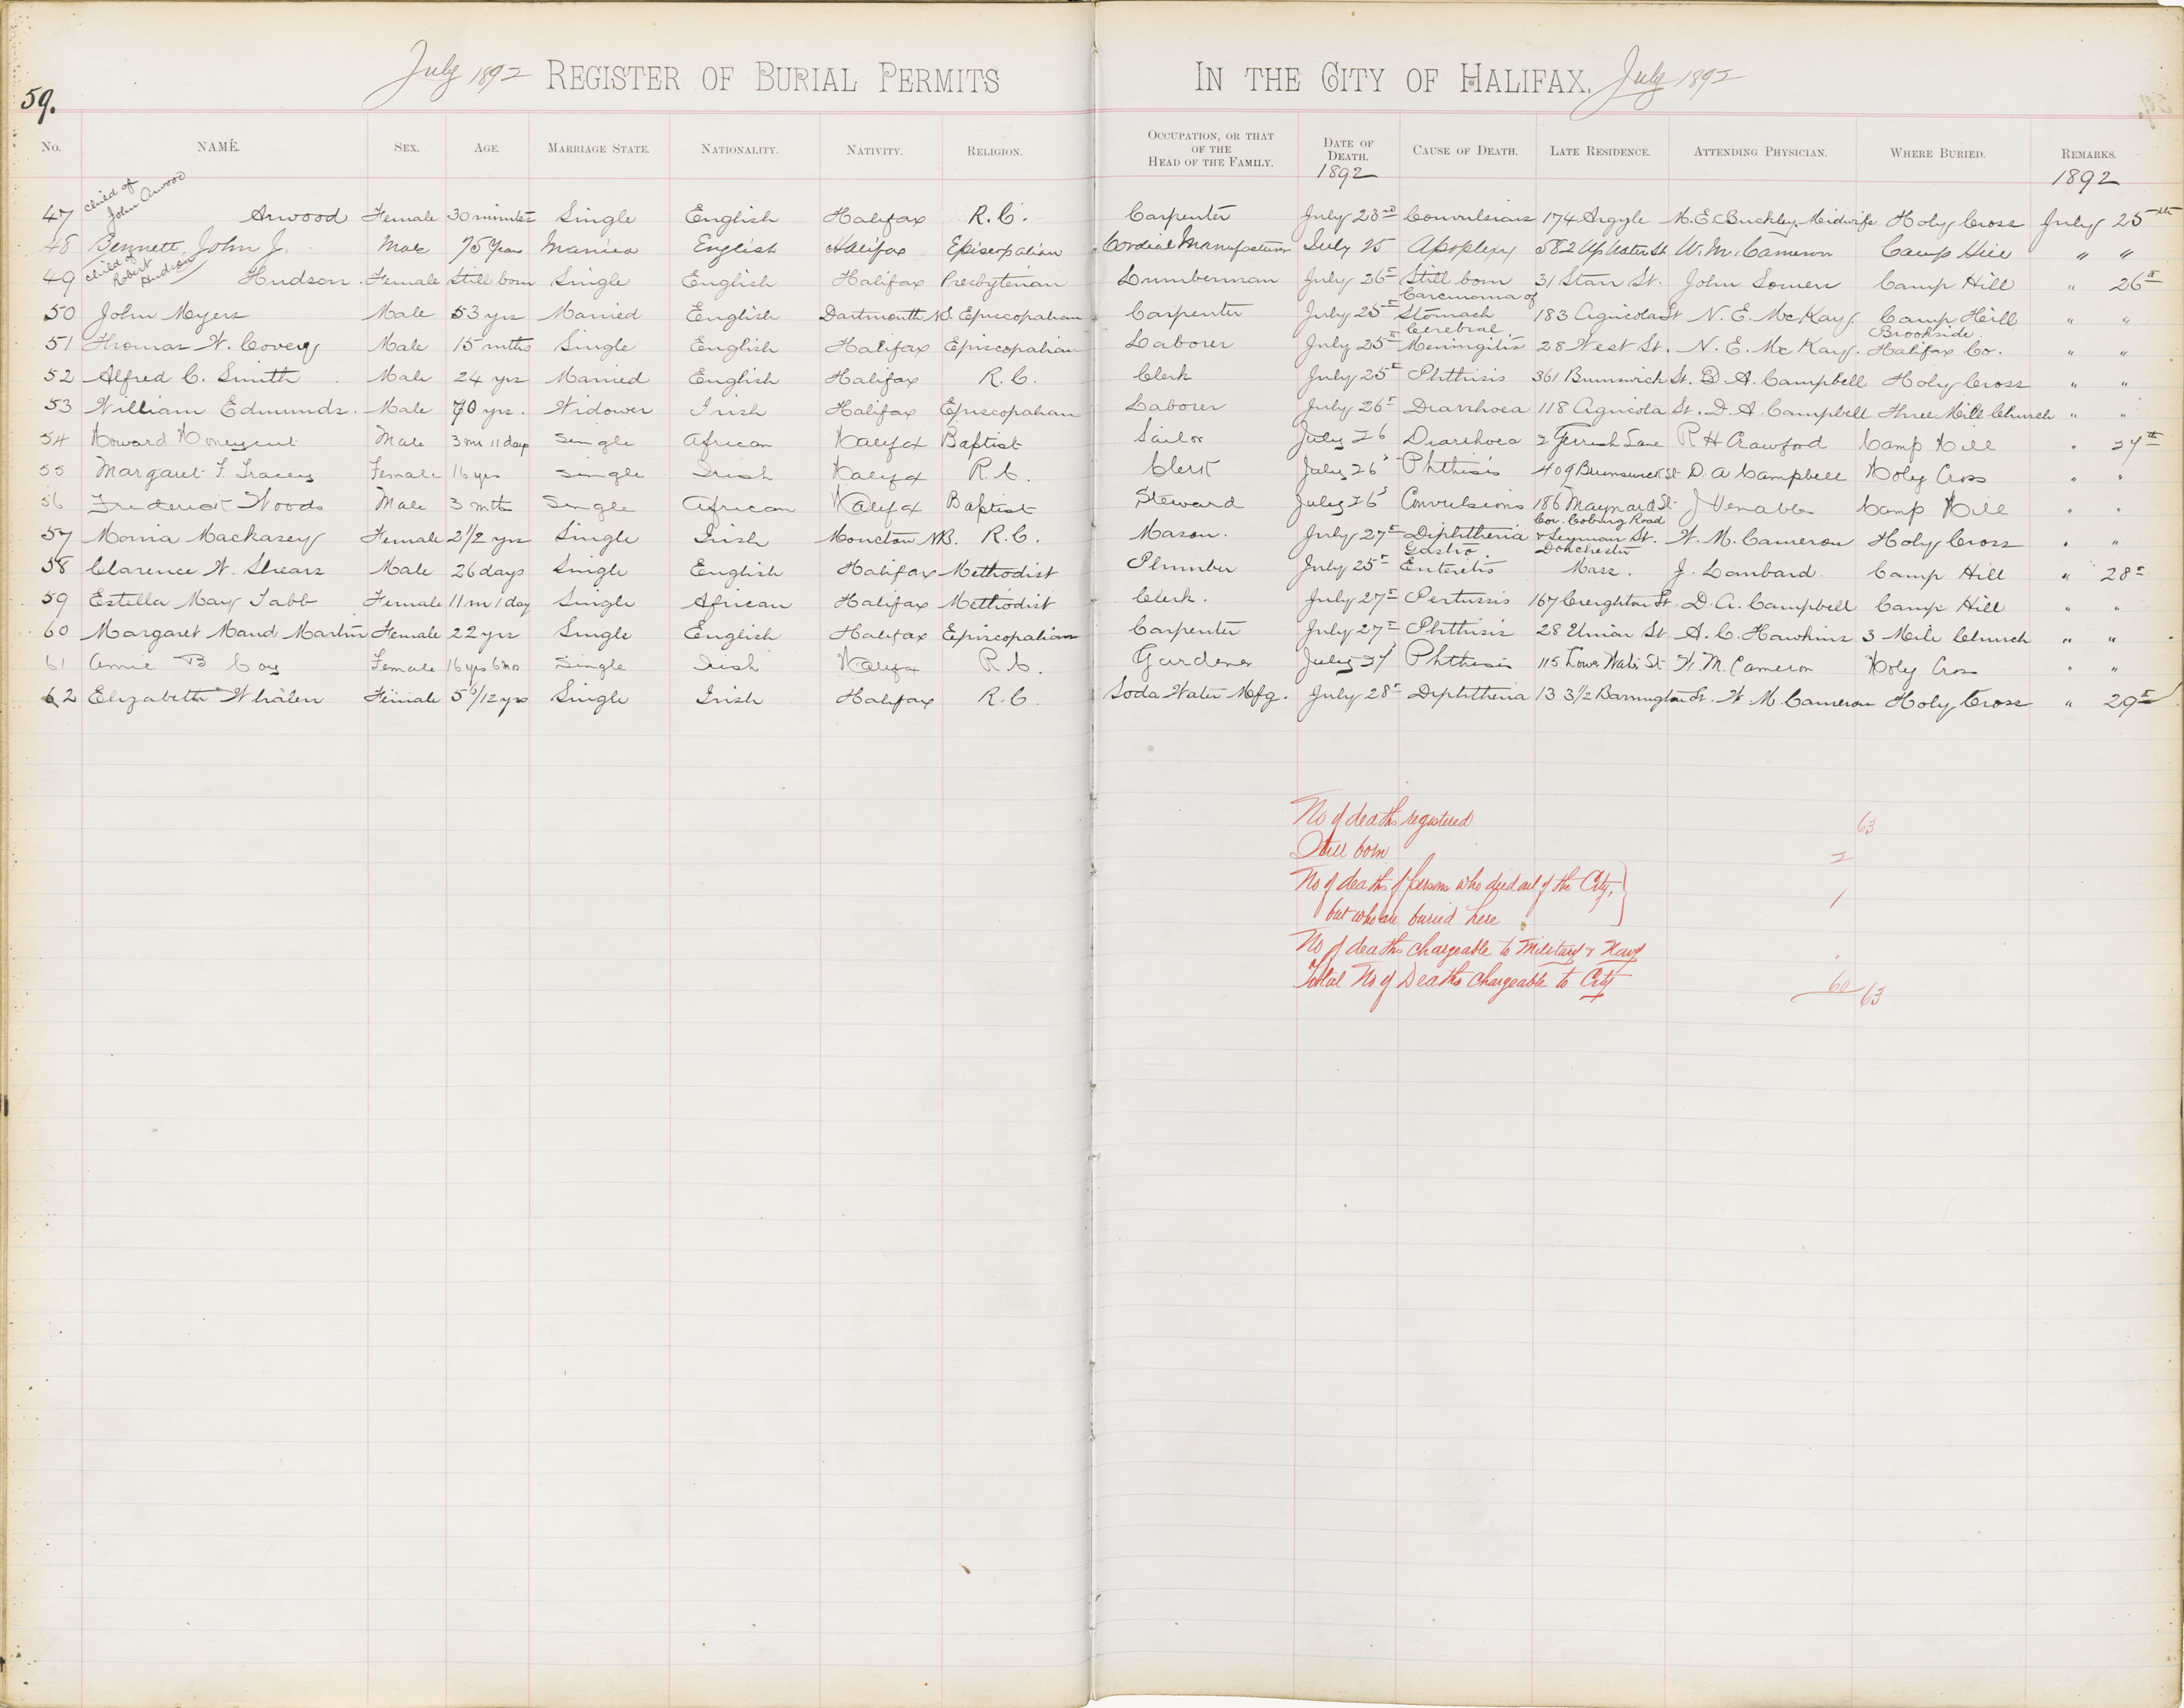 July 1892 REGISTER OF BURIAL PERMITS IN THE CITY OF HALIFAX. July 1892
59.
No. NAME. SEX. AGE. MARRIAGE STATE. NATIONALITY. NATIVITY. RELIGION. OCCUPATION, OR THAT OF THE HEAD OF THE FAMILY. DATE OF DEATH. CAUSE OF DEATH. LATE RESIDENCE. ATTENDING PHYSICIAN. WHERE BURIED. REMARKS.
1892 1892
47 Child of John Arwood Arwood Female 30 minutes Single English Halifax R.C. Carpenter July 23rd Convulsions 174 Argyle M.E.C Buckley, Midwife Holy Cross July 25th
48 Bennett, John J. Male 75 Years Married English Halifax Episcopalian Cordial Manufacturer July 25 Apoplexy 582 Up Water St W. M. Cameron Camp Hill " "
49 Child of Robert Hudson Hudson Female Still born Single English Halifax Presbyterian Lumberman July 26th Still born 31 Starr St. John Somers Camp Hill " 26th
50 John Myers Male 53 yrs Married English Dartmouth N.S. Episcopalian Carpenter July 25th Carcinoma of Stomach 183 Agricola St N. E. McKay. Camp Hill " "
51 Thomas W. Covey Male 15 mths Single English Halifax Episcopalian Laborer July 25th Cerebral Meningitis 28 West St. N. E. McKay. Brookside Halifax Co. " "
52 Alfred C. Smith Male 24 yrs Married English Halifax R.C. Clerk July 25th Phthisis 361 Brunswick St. D. A. Campbell Holy Cross " "
53 William Edmunds. Male 70 yrs. Widower Irish Halifax Episcopalian Laborer July 26th Diarrhoea 118 Agricola St. D. A. Campbell Three Mile Church " "
54 Howard Honeycut Male 3 ms 11 days Single African Halifax Baptist Sailor July 26 Diarrhoea 2 Gerrish Lane R H Crawford Camp Hill " 27th
55 Margaret F Tracey Female 16 yrs Single Irish Halifax R.C. Clerk July 26th Phthisis 409 Brunswick St D. A Campbell Holy Cross " "
56 Frederick Woods Male 3 mths Single African Halifax Baptist Steward July 26th Convulsions 186 Maynard St J Venables Camp Hill " "
57 Mona Mackasey Female 2 1/2 yrs Single Irish Moncton N.B. R.C. Mason. July 27th Diphtheria Cor. Coburg Road & Seymour St. W. M. Cameron Holy Cross " "
58 Clarence W. Shears Male 26 days Single English Halifax Methodist Plumber July 25th Gastro Enteritis Dorchester Mass. J. Lombard Camp Hill " 28th
59 Estella May Tabb Female 11 m 1 day Single African Halifax Methodist Clerk. July 27th Pertussis 167 Creighton St D. A. Campbell Camp Hill " "
60 Margaret Maud Martin Female 22 yrs Single English Halifax Episcopalian Carpenter July 27th Phthisis 28 Union St A. C. Hawkins 3 Mile Church " "
61 Annie B Coy Female 16 yrs 6 mos Single Irish Halifax R.C. Gardener July 27 Phthisis 115 Lower Water St W. M. Cameron Holy Cross " "
62 Elizabeth Whalen Female 5 6/12 yrs Single Irish Halifax R.C. Soda Water Mfg. July 28th Diphtheria 13 3 1/2 Barrington St. W. M. Cameron Holy Cross " 29th
No of deaths registered 63
Still born 2
No of deaths of persons who died out of the City,
but who are buried here 1
No of deaths chargeable to Military & Navy .
Total No of Deaths chargeable to City 60 63